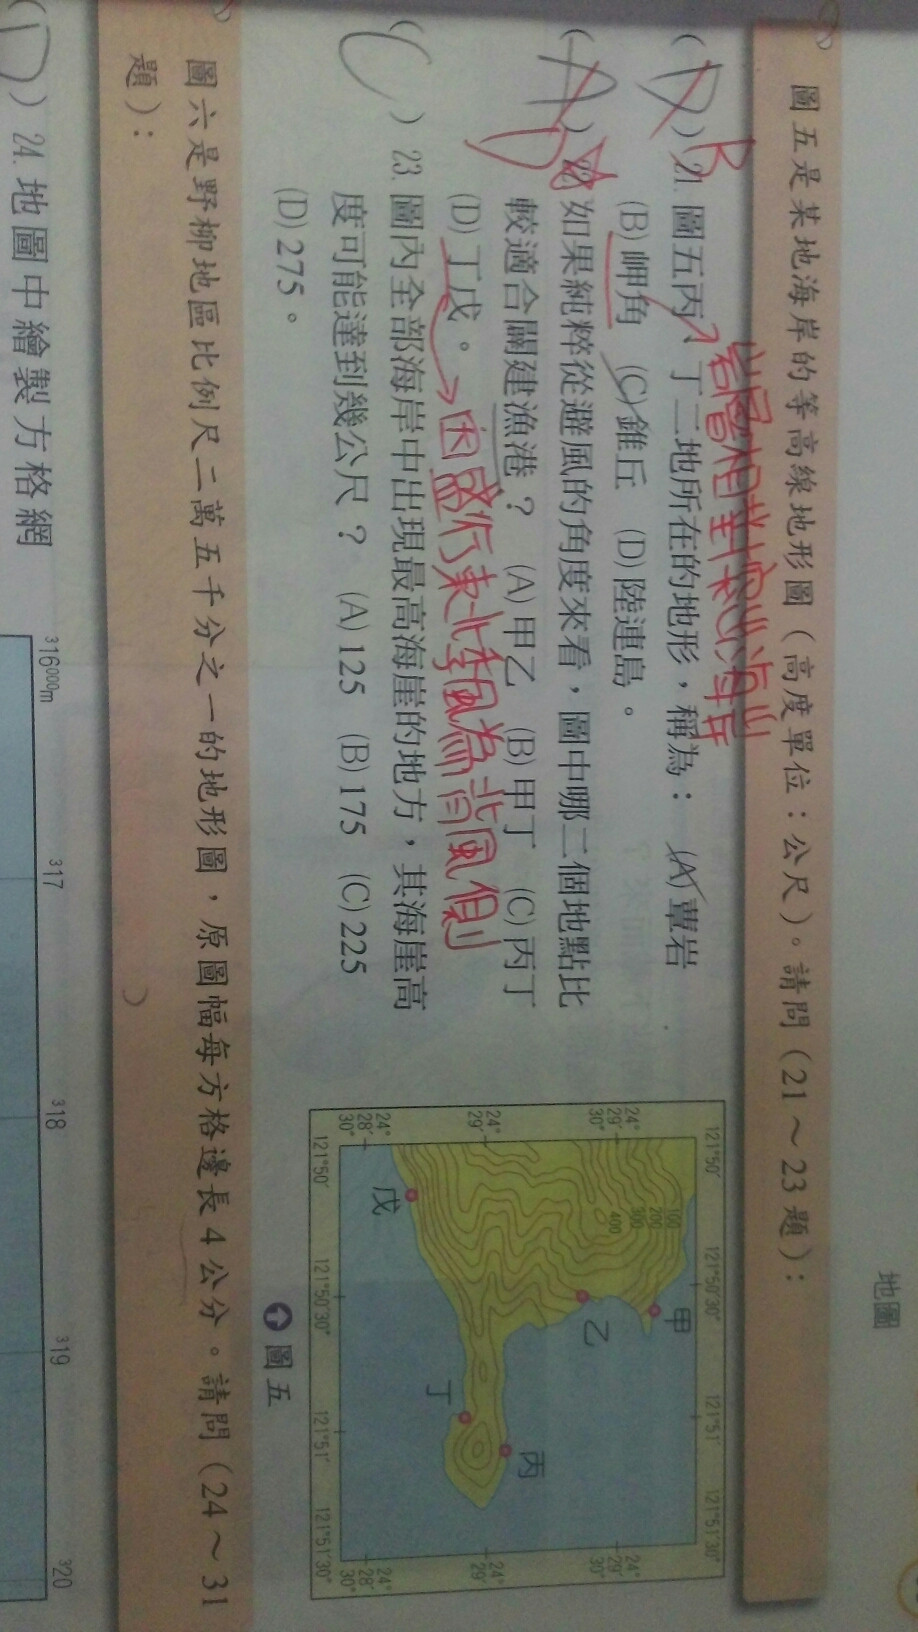 地圖
圖五是某地海岸的等高線地形圖（高度單位：公尺）。請問（21～23題）：
岩層相對突出海岸
(D) B 21. 圖五丙、丁二地所在的地形，稱為： (A)蕈岩
(B)岬角 (C)錐丘 (D)陸連島。
(A) D 22. 如果純粹從避風的角度來看，圖中哪二個地點比
較適合闢建漁港？ (A)甲乙 (B)甲丁 (C)丙丁
(D)丁戊。
→因盛行東北季風為背風側
(C) 23. 圖內全部海岸中出現最高海崖的地方，其海崖高
度可能達到幾公尺？ (A)125 (B)175 (C)225
(D)275。
121°50' 121°50'30" 121°51' 121°51'30"
24°29'30"
24°29'
24°28'30"
100
200
300
400
甲
乙
丙
丁
戊
24°29'30"
24°29'
24°28'30"
121°50' 121°50'30" 121°51' 121°51'30"
圖五
圖六是野柳地區比例尺二萬五千分之一的地形圖，原圖幅每方格邊長4公分。請問（24～31
題）：
(D) 24. 地圖中繪製方格網
316000m 317 318 319 320